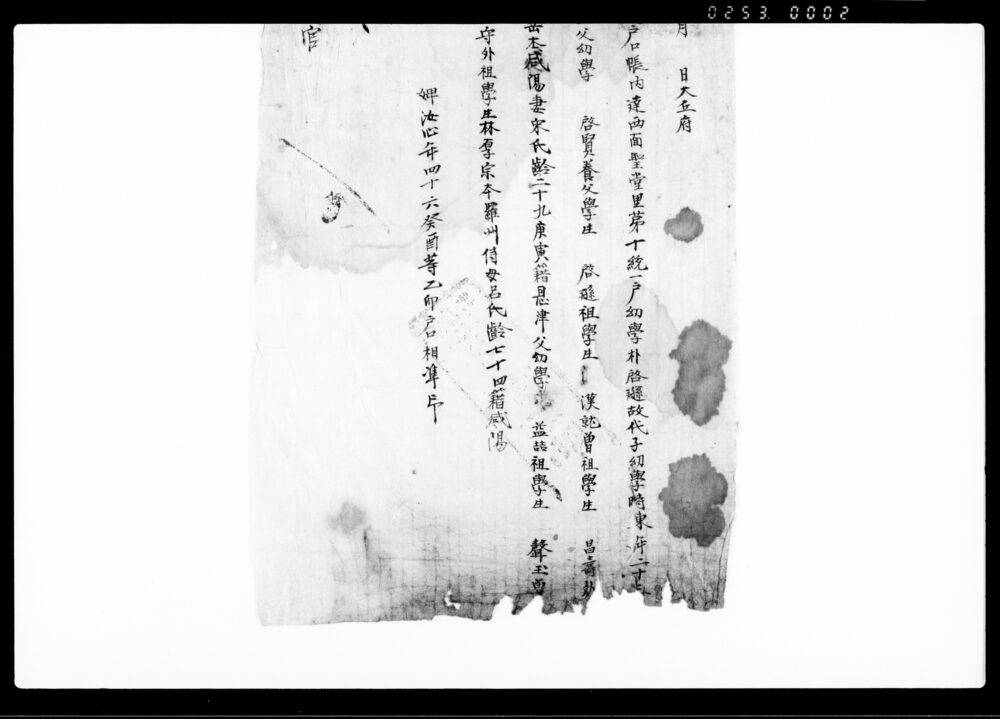 0253. 0002
月 日大丘府
戶口帳內達西面聖堂里第十統一戶幼學朴啓遜故代子幼學時東年二十七
父幼學 啓賢養父學生 啓遜祖學生 漢龍曾祖學生 昌壽外
岳本咸陽妻宋氏齡二十九庚寅籍恩津父幼學 益喆祖學生 聲玉曾
守外祖學生林厚宗本羅州侍母呂氏齡七十四籍咸陽
婢汝心年四十六癸酉等乙卯戶口相準印
官